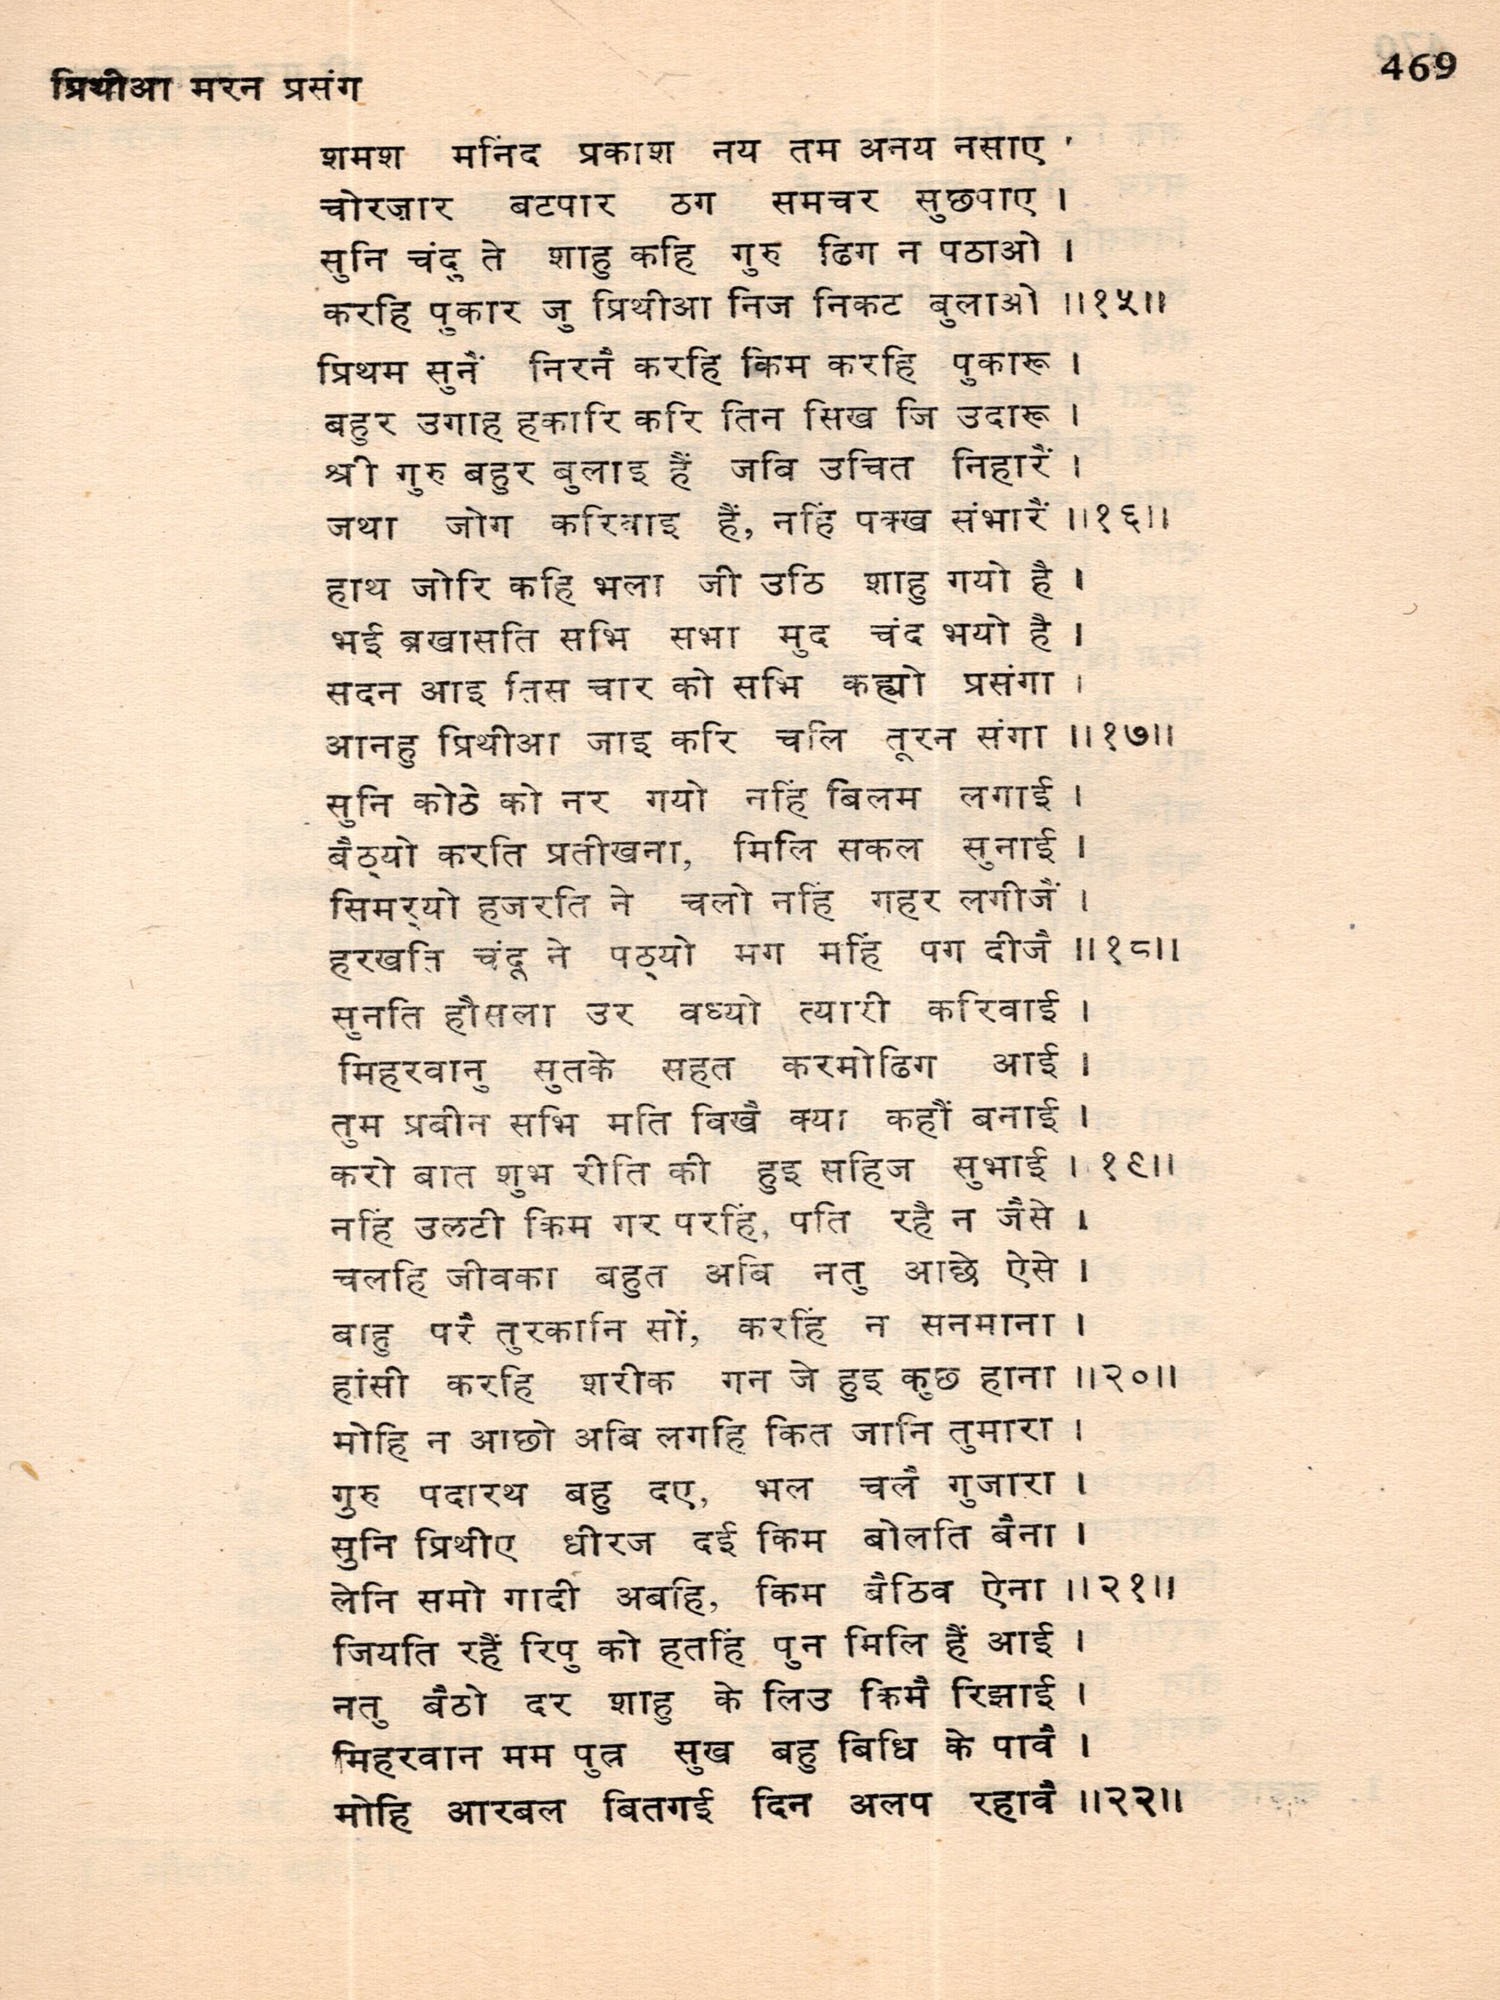 प्रिथीआ मरन प्रसंग
469
शमश मनिंद प्रकाश नय तम अनय नसाए '
चोरज़ार बटपार ठग समचर सुछपाए ।
सुनि चंदु ते शाहु कहि गुरु ढिग न पठाओ ।
करहि पुकार जु प्रिथीआ निज निकट बुलाओ ॥१५॥
प्रिथम सुनैं निरनै करहि किम करहि पुकारू ।
बहुर उगाह हकारि करि तिन सिख जि उदारू ।
श्री गुरु बहुर बुलाइ हैं जबि उचित निहारैं ।
जथा जोग करिवाइ हैं, नहिं पक्ख संभारैं ॥१६॥
हाथ जोरि कहि भला जी उठि शाहु गयो है ।
भई ब्रखासति सभि सभा मुद चंद भयो है ।
सदन आइ तिस चार को सभि कह्यो प्रसंगा ।
आनहु प्रिथीआ जाइ करि चलि तूरन संगा ॥१७॥
सुनि कोठे को नर गयो नहिं बिलम लगाई ।
बैठ्यो करति प्रतीखना, मिलि सकल सुनाई ।
सिमर्‌यो हजरति ने चलो नहिं गहर लगीजैं ।
हरखति चंदू ने पठ्यो मग महिं पग दीजै ॥१८॥
सुनति हौसला उर वध्यो त्यारी करिवाई ।
मिहरवानु सुतके सहत करमोढिग आई ।
तुम प्रबीन सभि मति विखै क्या कहौं बनाई ।
करो बात शुभ रीति की हुइ सहिज सुभाई । १९॥
नहिं उलटी किम गर परहिं, पति रहै न जैसे ।
चलहि जीवका बहुत अबि नतु आछे ऐसे ।
बाहु परै तुरकानि सों, करहिं न सनमाना ।
हांसी करहि शरीक गन जे हुइ कुछ हाना ॥२०॥
मोहि न आछो अबि लगहि कित जानि तुमारा ।
गुरु पदारथ बहु दए, भल चलै गुजारा ।
सुनि प्रिथीए धीरज दई किम बोलति बैना ।
लेनि समो गादी अबहि, किम बैठिव ऐना ॥२१॥
जियति रहैं रिपु को हतहिं पुन मिलि हैं आई ।
नतु बैठो दर शाहु के लिउ क्रिमै रिझाई ।
मिहरवान मम पुत्र सुख बहु बिधि के पावै ।
मोहि आरबल बितगई दिन अलप रहावै ॥२२॥